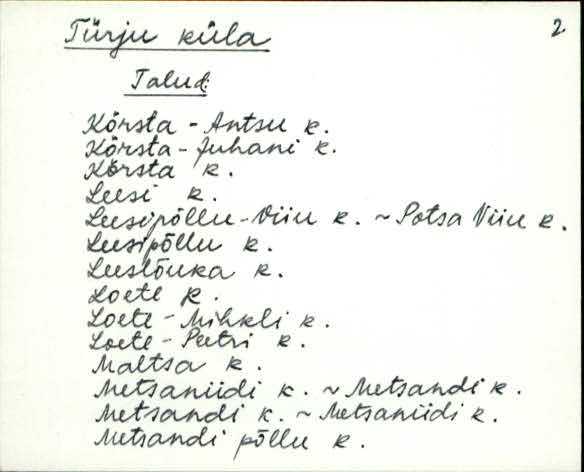 2
Türju küla
Talud:
Kõrsta - Antsu k.
Kõrsta - Juhani k.
Kõrsta k.
Leesi k.
Leesipõllu-Viiu k. ~ Potsa Viiu k.
Leesipõllu k.
Leeslõuka k.
Loete k.
Loete - Mihkli k.
Loete - Peetri k.
Maltsa k.
Metsaniidi k. ~ Metsandi k.
Metsandi k. ~ Metsaniidi k.
Metsandi põllu k.